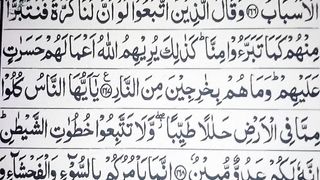 الْاَسْبَابُ ﴿۱۶۶﴾ وَقَالَ الَّذِيْنَ اتَّبَعُوْا لَوْ اَنَّ لَنَا كَرَّةً فَنَتَبَرَّاَ
مِنْهُمْ كَمَا تَبَرَّءُوْا مِنَّا ؕ كَذٰلِكَ يُرِيْهِمُ اللّٰهُ اَعْمَالَهُمْ حَسَرٰتٍ
عَلَيْهِمْ ؕ وَمَا هُمْ بِخٰرِجِيْنَ مِنَ النَّارِ ﴿۱۶۷﴾ يٰۤاَيُّهَا النَّاسُ كُلُوْا
مِمَّا فِى الْاَرْضِ حَلٰلًا طَيِّبًا ۖ وَّلَا تَتَّبِعُوْا خُطُوٰتِ الشَّيْطٰنِ ؕ
اِنَّهٗ لَكُمْ عَدُوٌّ مُّبِيْنٌ ﴿۱۶۸﴾ اِنَّمَا يَاْمُرُكُمْ بِالسُّوْٓءِ وَالْفَحْشَآءِ وَ